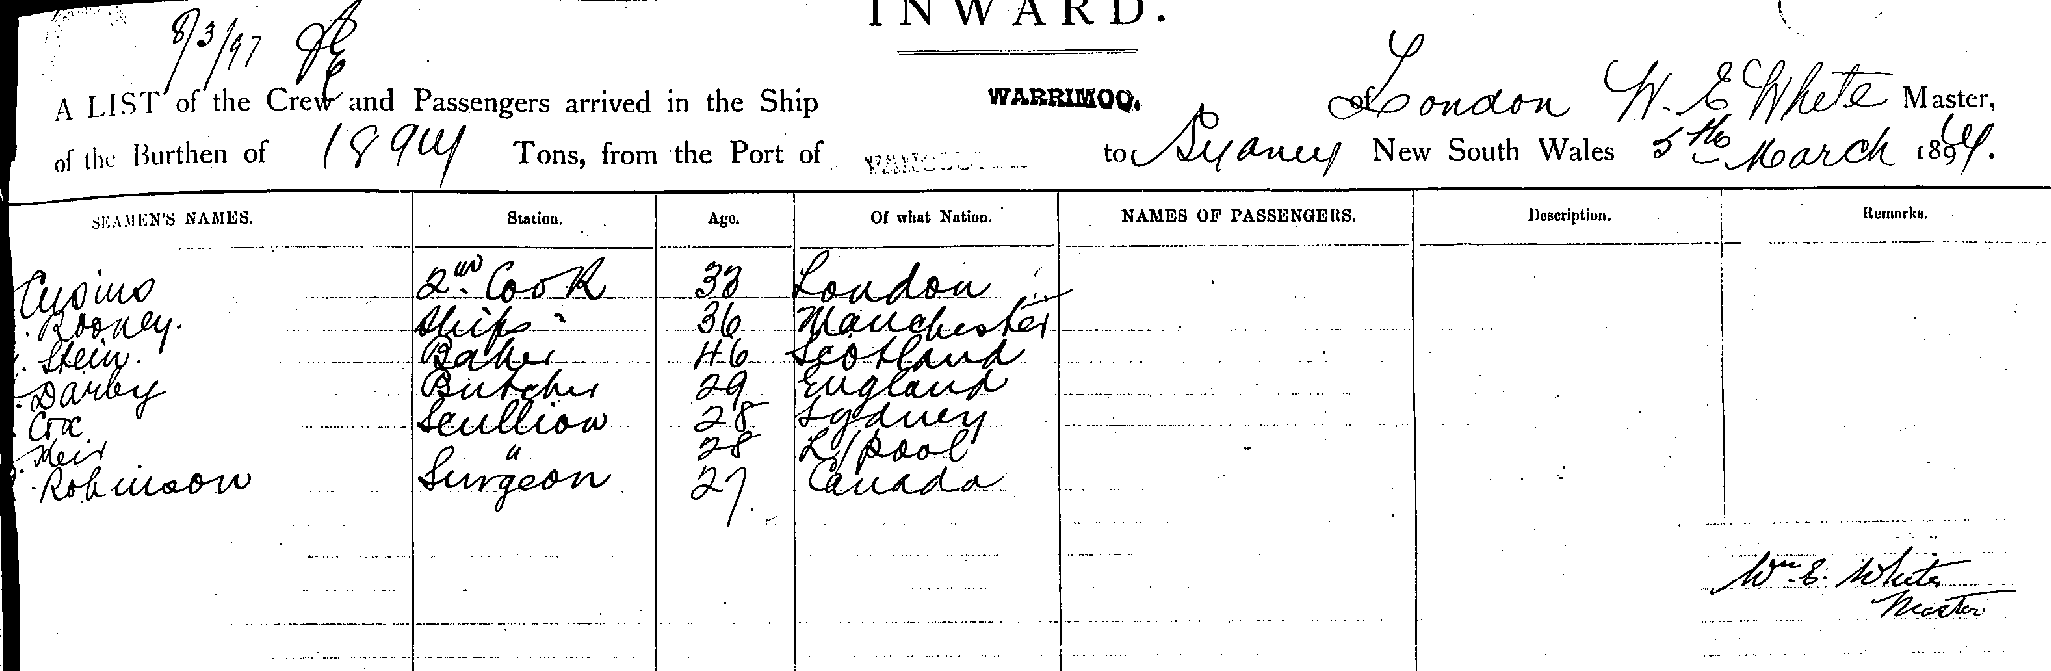 INWARD.
8/3/97
A LIST of the Crew and Passengers arrived in the Ship WARRIMOO. of London W. E. White Master,
of the Burthen of 1894 Tons, from the Port of to Sydney New South Wales 5th March 189
SEAMEN'S NAMES. Station. Age. Of what Nation. NAMES OF PASSENGERS. Description. Remarks.
Cusins 2nd Cook 33 London
Rooney. Ships " 36 Manchester
Stein. Baker 46 Scotland
Darby Butcher 29 England
Cox Scullion 28 Sydney
" 28 L/pool
Robinson Surgeon 27 Canada
Wm. E. White
Master